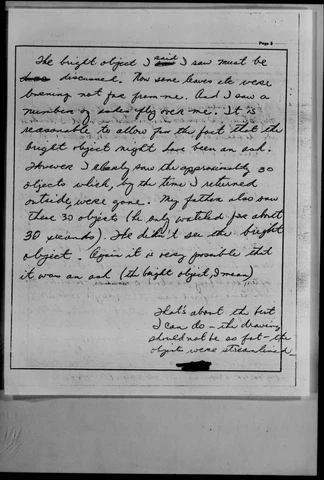 Page 8
The bright object I said I saw must be
discussed. Now some leaves etc were
burning not far from me. And I saw a
number of ashes fly over me. It is
reasonable to allow for the fact that the
bright object might have been an ash.
However I clearly saw the approximately 30
objects which, by the time I returned
outside, were gone. My father also saw
these 30 objects (he only watched for about
30 seconds). He didn't see the bright
object. Again it is very possible that
it was an ash (the bright object, I mean)
That's about the best
I can do – the drawing
should not be so fat – the
objects were streamlined